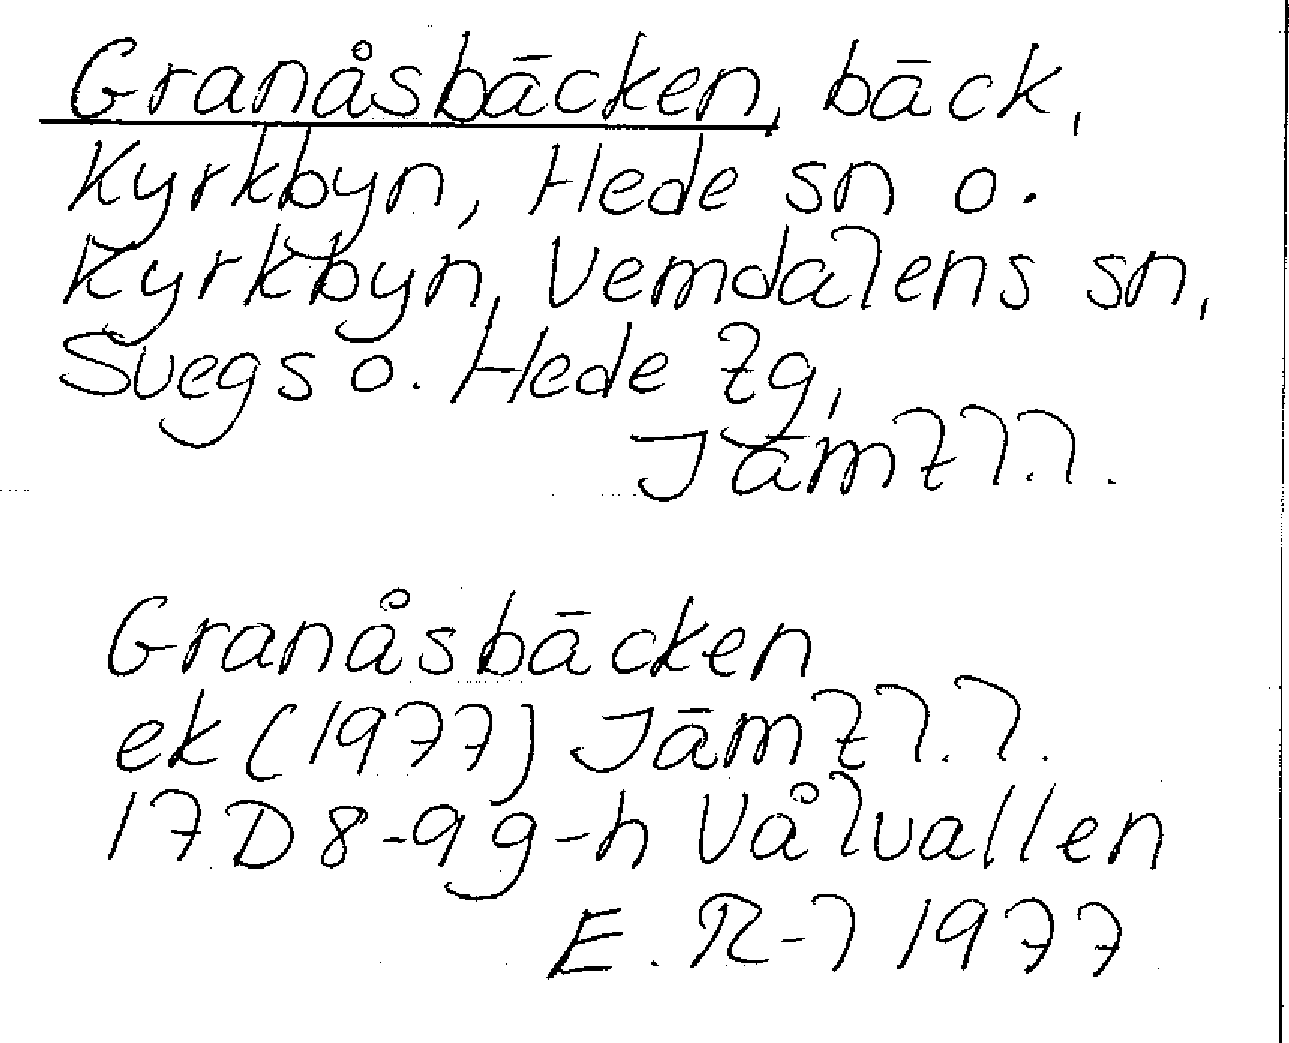 Granåsbäcken, bäck,
Kyrkbyn, Hede sn o.
Kyrkbyn, Vemdalens sn,
Svegs o. Hede tg,
Jämtl.l.
Granåsbäcken
ek (1977) Jämtl.l.
17 D 8-9 g-h Vålvallen
E. R-l 1977